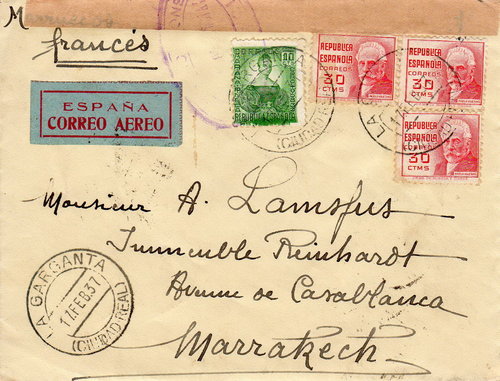 francés
ESPAÑA
CORREO AEREO
10
REPUBLICA ESPAÑOLA
CORREOS
30
CTMS
REPUBLICA ESPAÑOLA
CORREOS
30
CTMS
REPUBLICA ESPAÑOLA
CORREOS
30
CTMS
(CIUDAD REAL)
Monsieur A. Lamsfus
Immeuble Reinhardt
Avenue de Casablanca
Marrakech
LA GARGANTA
17.FEB.37
(CIUDAD REAL)